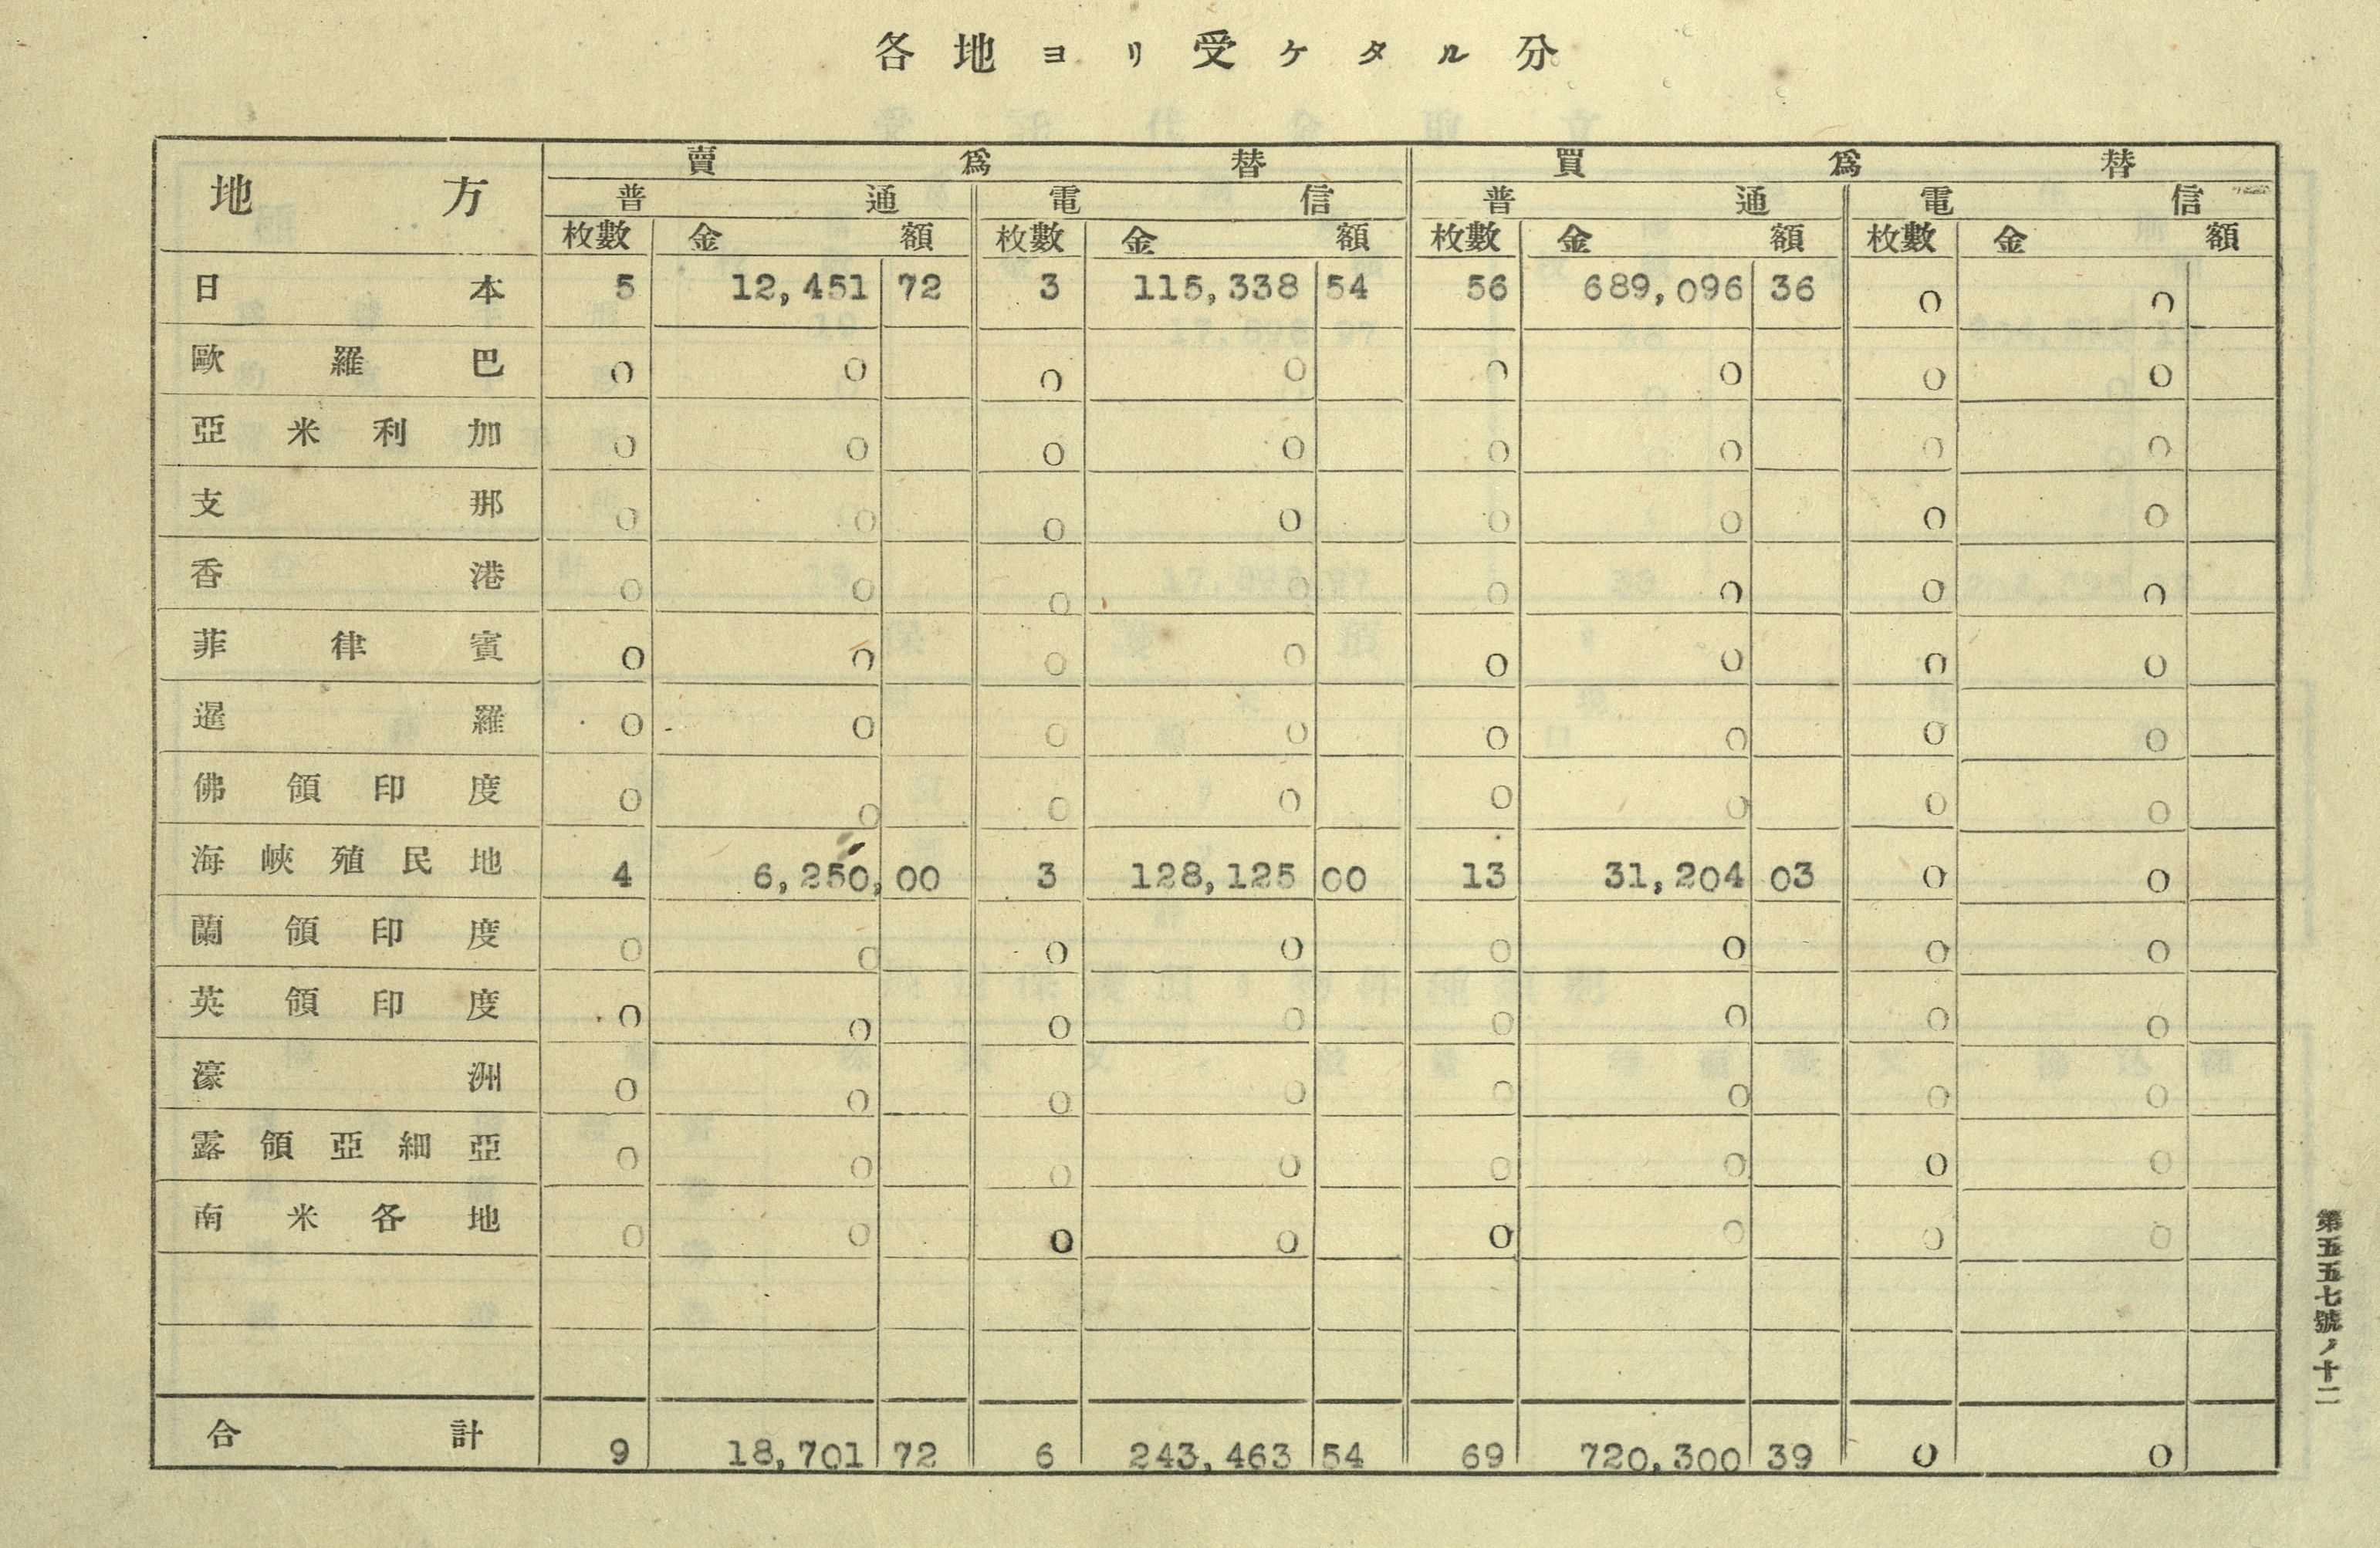 各地ヨリ受ケタル分
地方 賣爲替 買爲替
普通 電信 普通 電信
枚數 金額 枚數 金額 枚數 金額 枚數 金額
日本 5 12,451 72 3 115,338 54 56 689,096 36 0 0
歐羅巴 0 0 0 0 0 0 0 0
亞米利加 0 0 0 0 0 0 0 0
支那 0 0 0 0 0 0 0 0
香港 0 0 0 0 0 0 0 0
菲律賓 0 0 0 0 0 0 0 0
暹羅 0 0 0 0 0 0 0 0
佛領印度 0 0 0 0 0 0 0 0
海峽殖民地 4 6,250,00 3 128,125 00 13 31,204 03 0 0
蘭領印度 0 0 0 0 0 0 0 0
英領印度 0 0 0 0 0 0 0 0
濠洲 0 0 0 0 0 0 0 0
露領亞細亞 0 0 0 0 0 0 0 0
南米各地 0 0 0 0 0 0 0 0
合計 9 18,701 72 6 243,463 54 69 720,300 39 0 0
第五五七號ノ十二